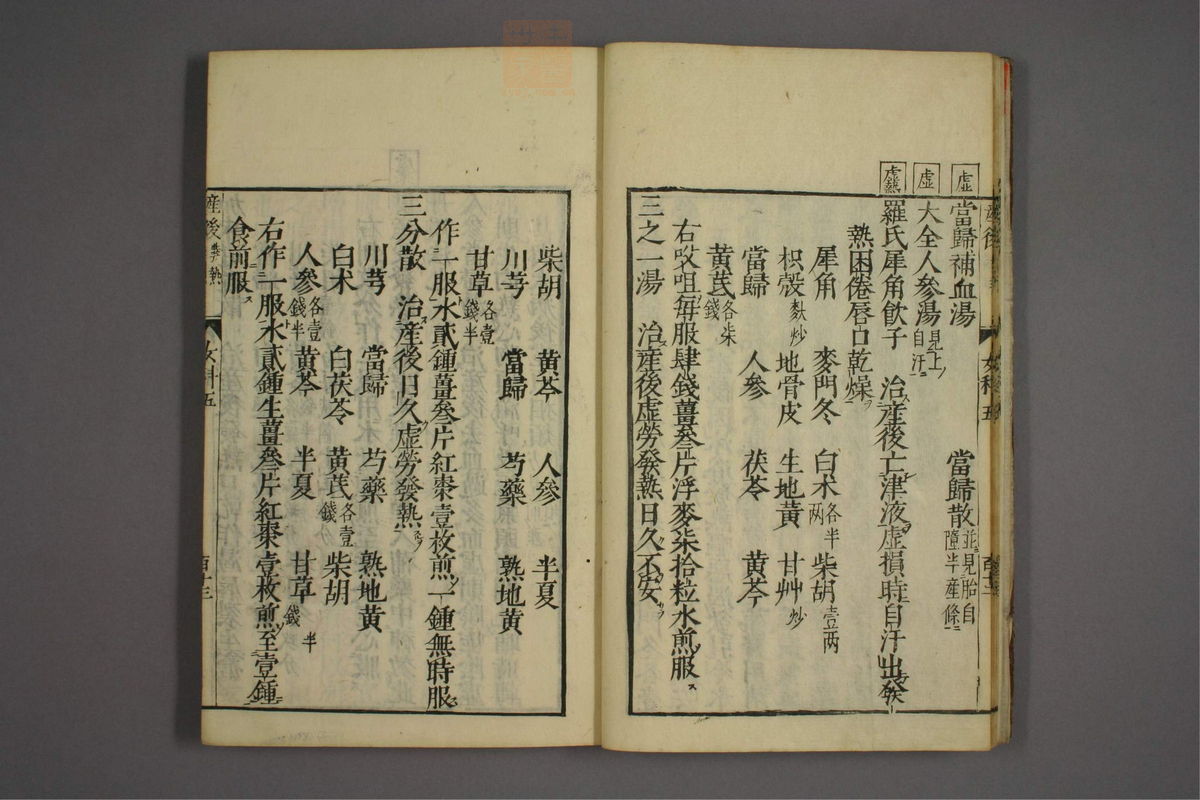 虛
當歸補血湯　當歸散 並見胎自墮半產條ニ
虛
大全人參湯 見上自汗ニ
虛熱
羅氏犀角飲子　治產後亡津液虛損時自汗出發
熱困倦唇口乾燥
犀角　麥門冬　白朮 各半兩　柴胡 壹兩
枳殼 麩炒　地骨皮　生地黃　甘艸 炒
當歸　人參　茯苓　黃芩
黃芪 各柒錢
右㕮咀每服肆錢薑叄片浮麥柒拾粒水煎服
三之一湯　治產後虛勞發熱日久不安
柴胡　黃芩　人參　半夏
川芎　當歸　芍藥　熟地黃
甘草 各壹錢半
作一服水貳鍾薑叄片紅棗壹枚煎一鍾無時服
三分散　治產後日久虛勞發熱
川芎　當歸　芍藥　熟地黃
白朮　白茯苓　黃芪 各壹錢　柴胡
人參 各壹錢半　黃芩　半夏　甘草 半錢
右作一服水貳鍾生薑叄片紅棗壹枚煎至壹鍾
食前服
產後 發熱　女科五　百十三